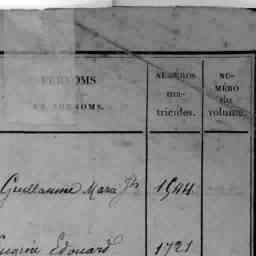 PRÉNOMS
ET SURNOMS.
NUMÉROS
ma-
tricules.
NU-
MÉRO
du
volume.
Guillaume Marie Jh 1944
Eugène Edouard 1721